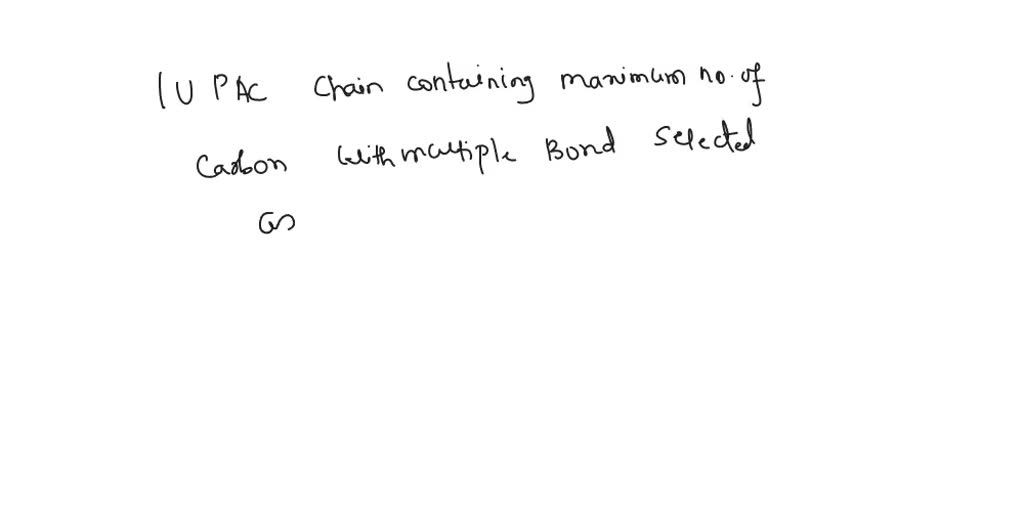 IUPAC Chain containing maximum no. of
Carbon with multiple Bond Selected
as